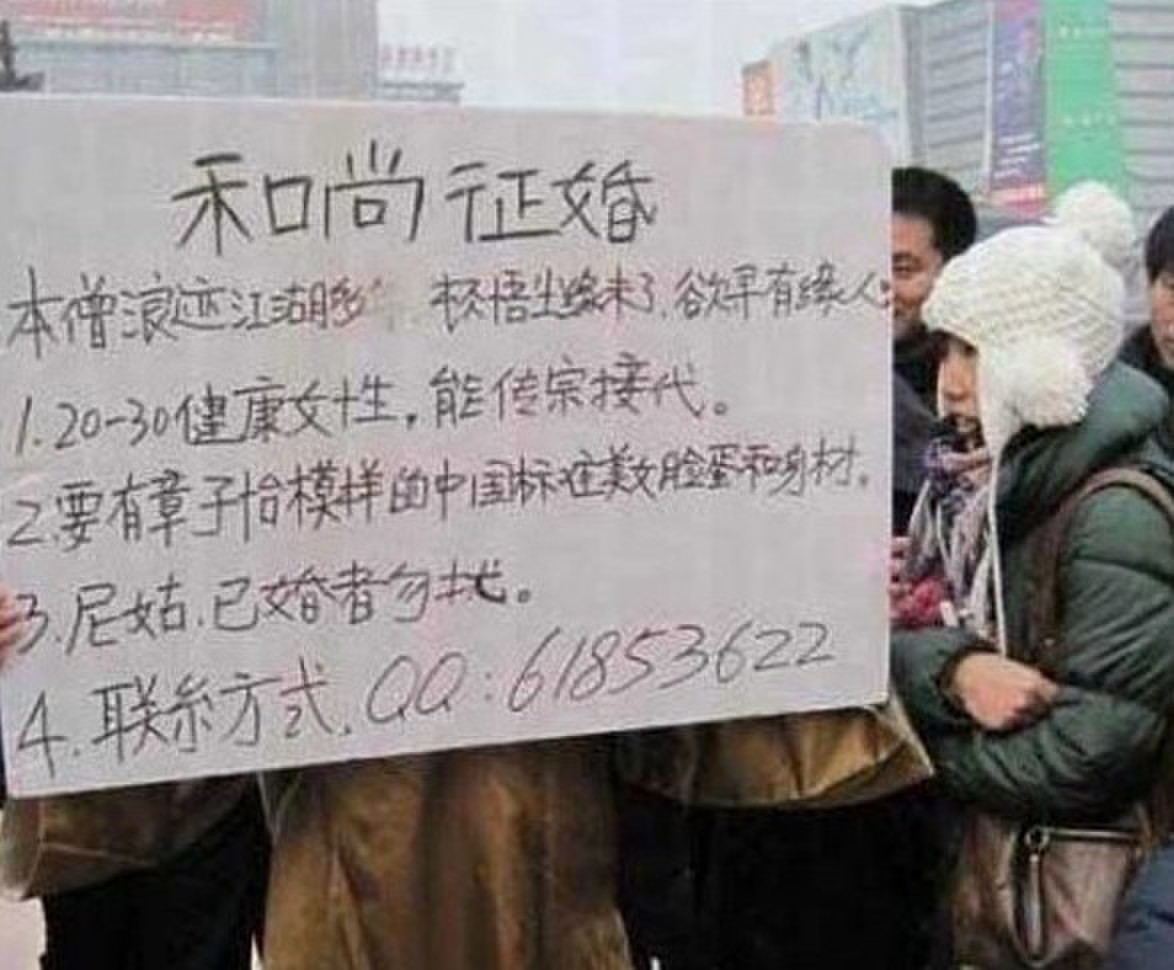 和尚征婚
本僧浪迹江湖多 悟尘缘未了.欲寻有缘人
1.20-30健康女性,能传宗接代。
2.要有章子怡模样的中国标准美女脸蛋和身材。
3.尼姑.已婚者勿扰。
4.联系方式.QQ:61853622